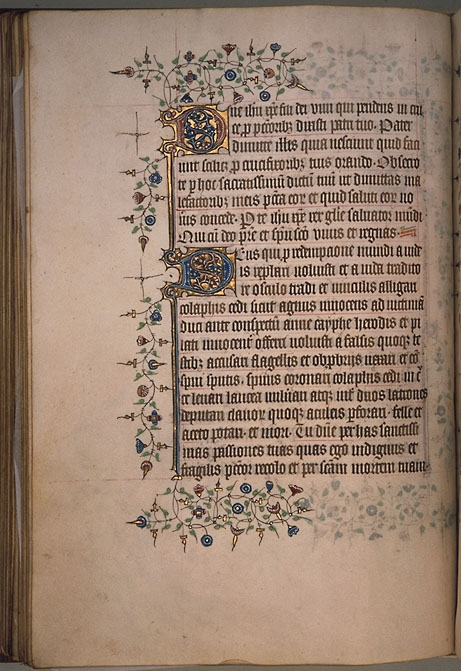 Dne ihu xpe fili dei viui qui pendens in cru
ce p pctoribz dixisti patri tuo. Pater
dimitte illis quia nesciunt quid faci
unt p crucifixoribz tuis orando. Obsecro
te p hoc sacratissimum dictu tuu ut dimittas ma
lefactoribz meis pcta eor et quid saluti eor no
uis concede. ihu xpe rex glie saluator mudi
Qui cu deo pre et spu sco viuis et regnas.
Deus qui p redempcione mundi a iude
is repbari uoluisti et a iuda tradito
re osculo tradi et uinculis alligari
colaphis cedi sicut agnus innocens ad uictimam
duci ante conspectu anne cayphe herodis et pi
lati innocent offerri uoluisti a falsis quoqz te
stibz accusari flagellis et obprbrijs uexari et co
spui sputis, spinis coronari colaphis cedi in c
ce leuari lancea uulnari atqz inter duos latrones
deputari clauor quoqz aculeis pforari. felle et
aceto potari. et mori. Tu dne per has sanctissi
mas passiones tuas quas ego indignus et
fragilis pctor recolo et per scam mortem tuam